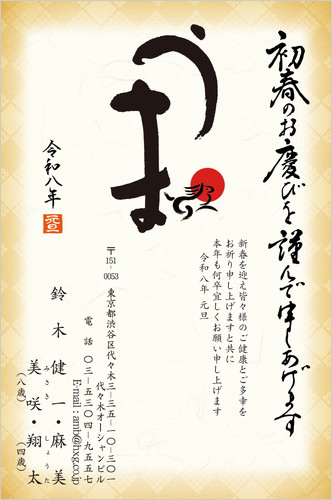 初春のお慶びを謹んで申しあげます
うま
新春を迎え皆々様のご健康とご多幸を
お祈り申し上げますと共に
本年も何卒宜しくお願い申し上げます
令和八年 元旦
令和八年
元旦
〒151-0053 東京都渋谷区代々木三-三五-一〇-三〇一
代々木オーシャンビル
電話 〇三-五三〇四-九五五七
E-mail : amb@hxg.co.jp
鈴木 健一・麻美
美咲・翔太
みさき しょうた
(八歳) (四歳)